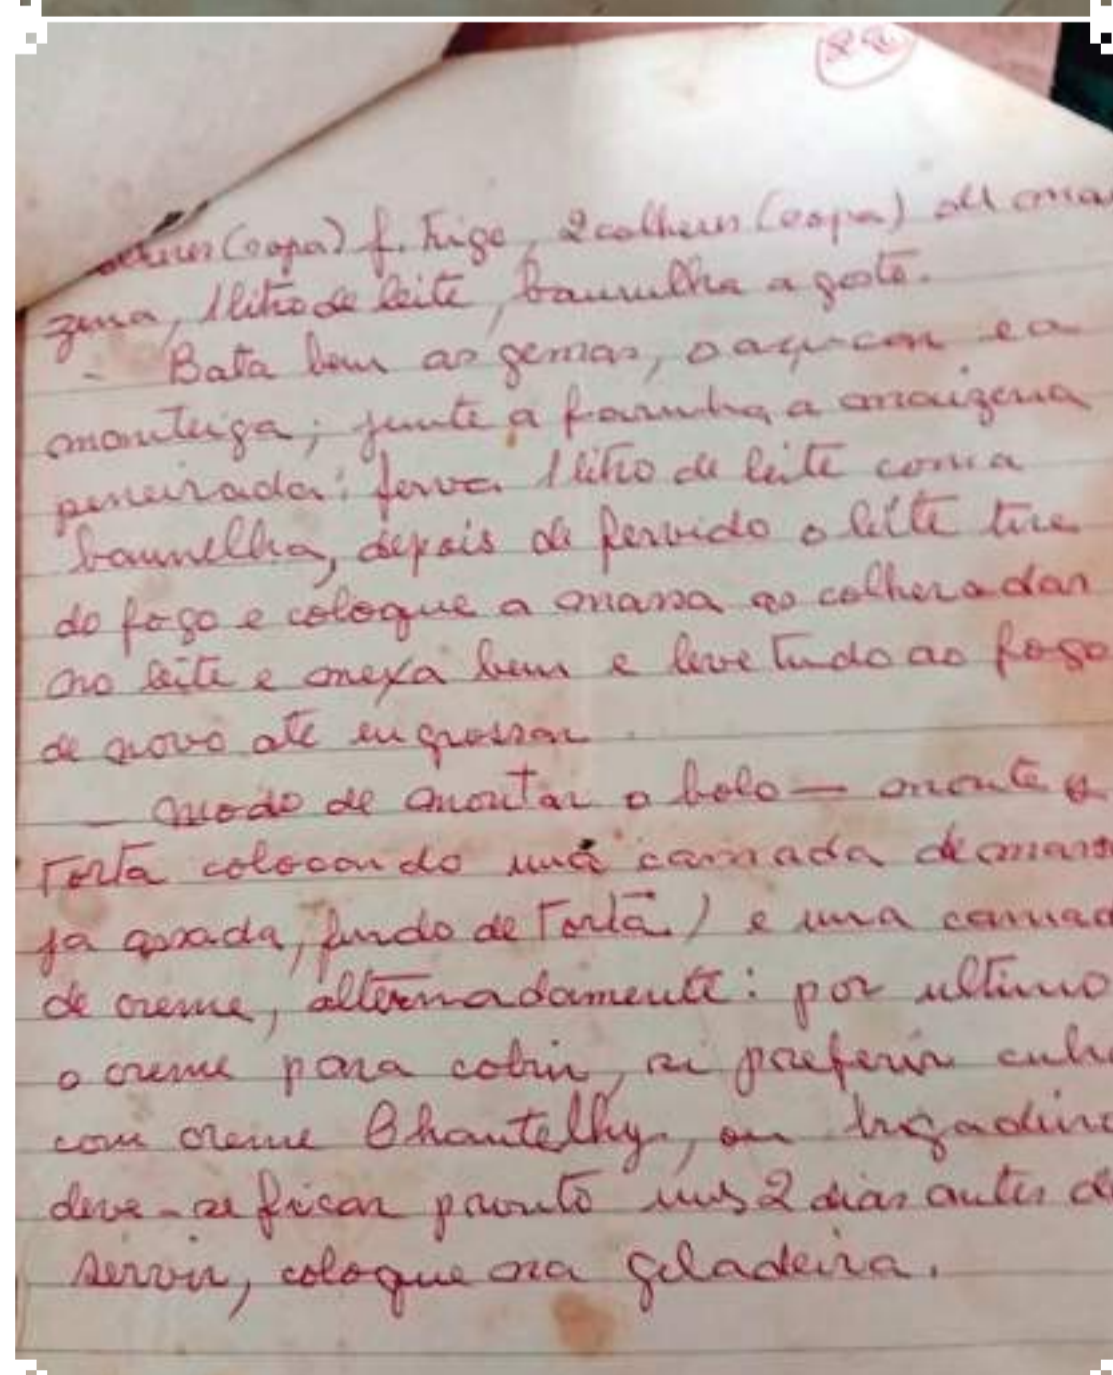 (sopa) f. trigo, 2 colheres (sopa) de mai
zena, 1 litro de leite, baunilha a gosto.
- Bata bem as gemas, o açucar e a
manteiga; junte a farinha, a maizena
peneirada; ferva 1 litro de leite com a
baunilha, depois de fervido o leite tire
do fogo e coloque a massa as colheradas
no leite e mexa bem e leve tudo ao fogo
de novo até engrossar.
— modo de montar o bolo — monte a
torta colocando uma camada de massa
ja assada, fundo de torta) e uma camad
de creme, alternadamente: por ultimo
o creme para cobrir, se preferir cubr
com creme Chantelhy, ou brigadeiro
deve-se ficar pronto uns 2 dias antes d
servir, coloque na geladeira.